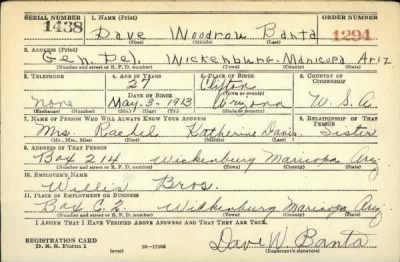 SERIAL NUMBER 1. NAME (Print) ORDER NUMBER
1438 Dave Woodrow Banta 1294
(First) (Middle) (Last)
2. ADDRESS (Print)
Gen. Del. Wickenburg. Maricopa Ariz
(Number and street or R. F. D. number) (Town) (County) (State)
3. TELEPHONE 4. AGE IN YEARS 5. PLACE OF BIRTH 6. COUNTRY OF CITIZENSHIP
27 Clifton
DATE OF BIRTH (Town or county)
None May-3-1913 Arizona U.S.A.
(Exchange) (Number) (Mo.) (Day) (Yr.) (State or country)
7. NAME OF PERSON WHO WILL ALWAYS KNOW YOUR ADDRESS 8. RELATIONSHIP OF THAT PERSON
Mrs Rachel Katherine Danis. Sister
(Mr., Mrs., Miss) (First) (Middle) (Last)
9. ADDRESS OF THAT PERSON
Box 214 Wickenburg Maricopa Ariz
(Number and street or R. F. D. number) (Town) (County) (State)
10. EMPLOYER'S NAME
Willis Bros.
11. PLACE OF EMPLOYMENT OR BUSINESS
Box C.2. Wickenburg Maricopa Ariz
(Number and street or R. F. D. number) (Town) (County) (State)
I AFFIRM THAT I HAVE VERIFIED ABOVE ANSWERS AND THAT THEY ARE TRUE.
REGISTRATION CARD
D. S. S. Form 1 (over) Dave W. Banta
(Registrant's signature)